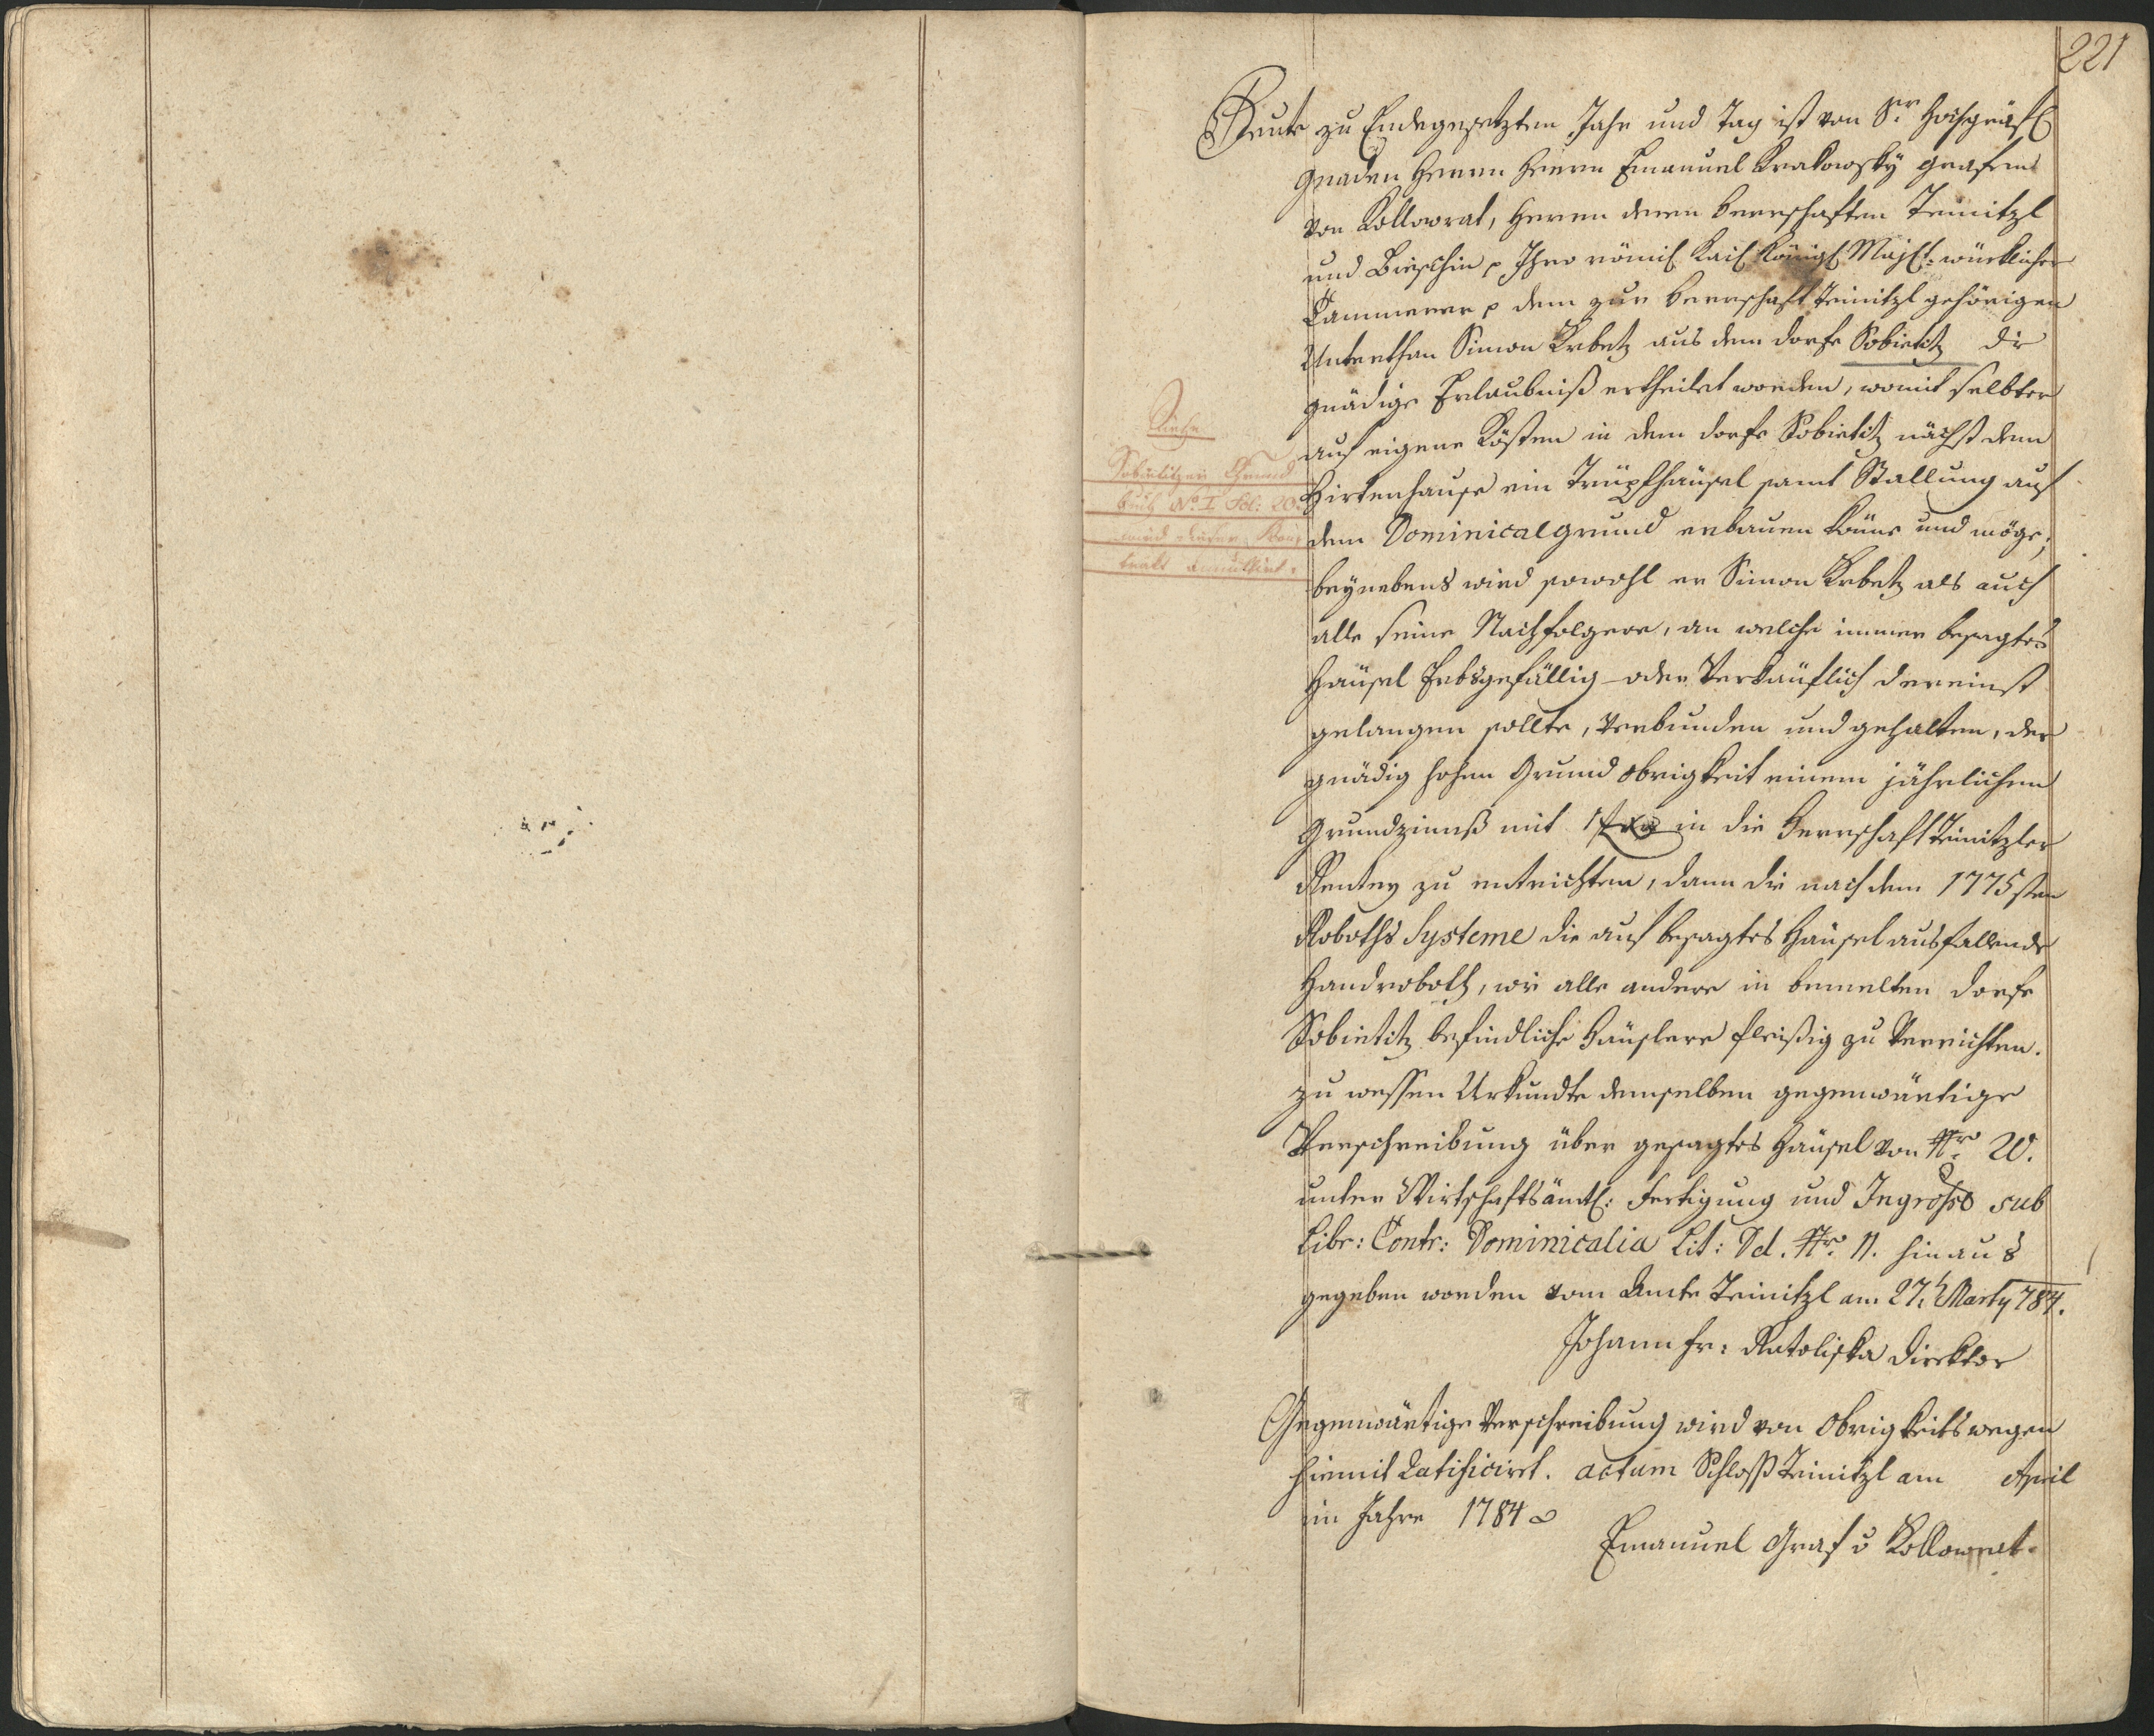 221
Heute zu Endegesetzten Jahr und Tag ist von Sr Hochgräfl
Gnaden Herrn Herrn Emanuel Krakowsky Grafen
von Kollowrat, Herrn deren Herrschaften Teinitzl
und Brieschin p Ihro römis Kais Königl Majst: würklicher
Cammerer p dem zur Herrschaft Teinitzl gehörigen
Unterthan Simon Krbetz aus dem dorfe Sobietitz die
gnädige Erlaubniß ertheilet worden, womit selbter
auf eigene Kösten in dem dorfe Sobietitz nächst dem
Hirtenhause ein Trüpfhäusel samt Stallung auf
dem Dominicalgrund erbauen könne und möge;
beynebens wird sowohl er Simon Krbetz als auch
alle seine Nachfolgere, an welche immer besagtes
Häusel Erbsgefällig oder Verkäuflich dereinst
gelangen sollte, verbunden und gehalten, der
gnädig hohen Grund obrigkeit einem jährlichen
Grundzinnß mit 1 in die Herrschaft Teinitzler
Renten zu entrichten, dann die nach dem 1775sten
Roboths Systeme die auf besagtes Häusel ausfallende
Handroboth, wie alle andere in bemelten dorfe
Sobietitz befindliche Häuslere fleißig zu Verrichten.
zu wessen Urkundte demselben gegenwärtige
Verschreibung über gesagtes Häusel von Nr. 20.
unter Wirtschaftsämtl: Fertigung und Ingrosso sub
Libr: Contr: Dominicalia Lit: Dd. Nr. 11. hinaus
gegeben worden vom Amte Teinitzl am 27. Marty 784.
Johann Fr: Ratoliska Direktor
Gegenwärtige Verschreibung wird von Obrigkeits wegen
hiemit Ratificiret. actum Schloß Teinitzl am April
im Jahre 1784
Emanuel Graf v Kollowrat.
Siehe
Sobietitzer Grund
buch No. I Fol: 20.
wird dieser Kon
trakt annullirt.